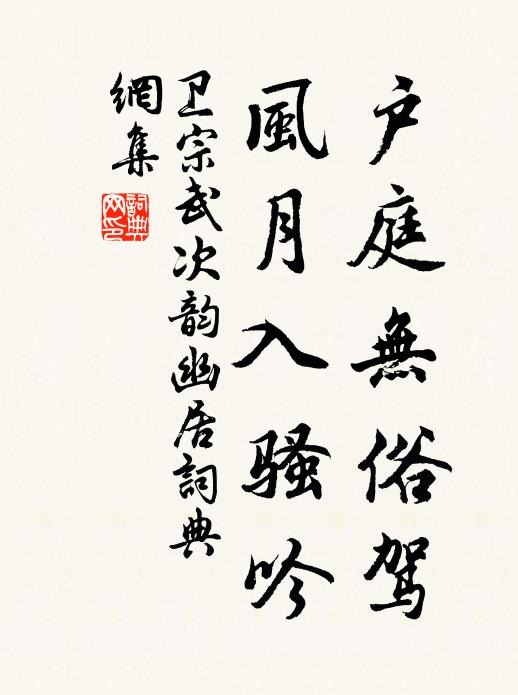 户庭無俗驾
風月入骚吟
卫宗武次韵幽居詞典
網集
詞典
网印